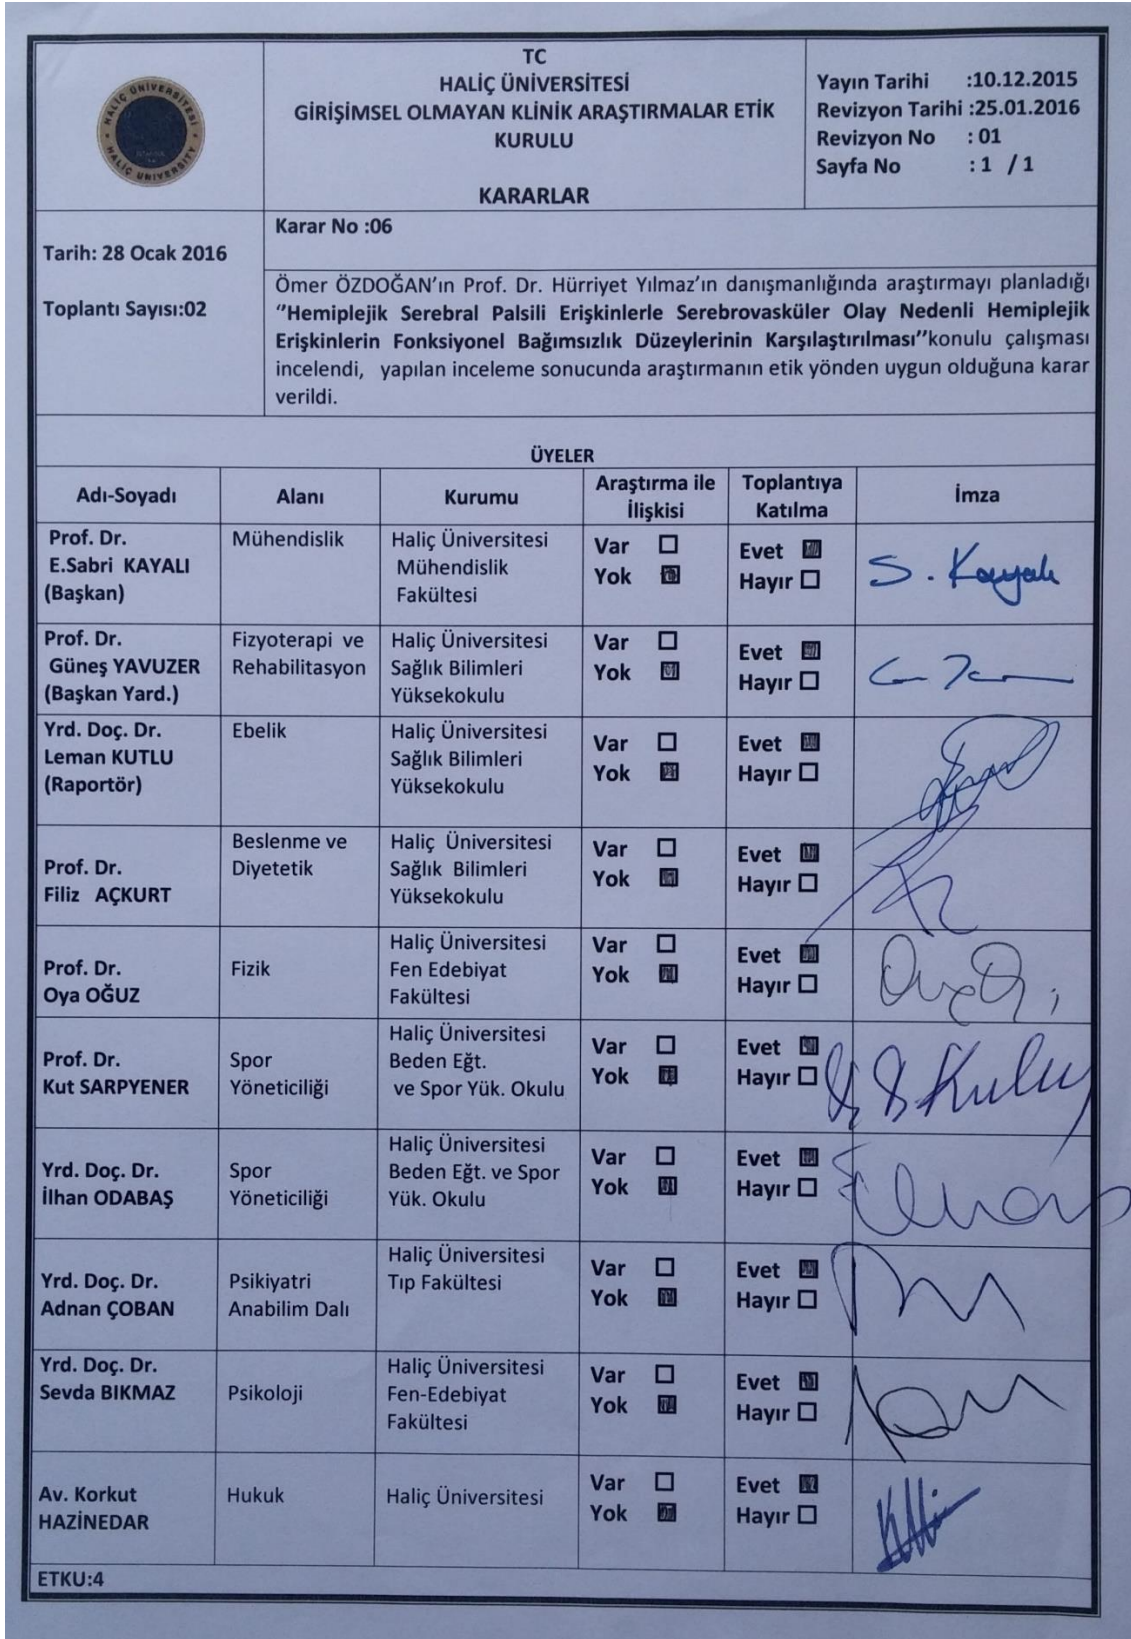 TC
HALİÇ ÜNİVERSİTESİ
GİRİŞİMSEL OLMAYAN KLİNİK ARAŞTIRMALAR ETİK
KURULU
KARARLAR
HALİÇ ÜNİVERSİTESİ
HALİÇ UNIVERSITY
Yayın Tarihi :10.12.2015
Revizyon Tarihi :25.01.2016
Revizyon No : 01
Sayfa No :1 / 1
Tarih: 28 Ocak 2016
Toplantı Sayısı:02
Karar No :06
Ömer ÖZDOĞAN’ın Prof. Dr. Hürriyet Yılmaz’ın danışmanlığında araştırmayı planladığı
‘’Hemiplejik Serebral Palsili Erişkinlerle Serebrovasküler Olay Nedenli Hemiplejik
Erişkinlerin Fonksiyonel Bağımsızlık Düzeylerinin Karşılaştırılması’’konulu çalışması
incelendi, yapılan inceleme sonucunda araştırmanın etik yönden uygun olduğuna karar
verildi.
ÜYELER
Adı-Soyadı
Alanı
Kurumu
Araştırma ile
İlişkisi
Toplantıya
Katılma
İmza
Prof. Dr.
E.Sabri KAYALI
(Başkan)
Mühendislik
Haliç Üniversitesi
Mühendislik
Fakültesi
Var
Yok
Evet
Hayır
S. Kayalı
Prof. Dr.
Güneş YAVUZER
(Başkan Yard.)
Fizyoterapi ve
Rehabilitasyon
Haliç Üniversitesi
Sağlık Bilimleri
Yüksekokulu
Var
Yok
Evet
Hayır
Yrd. Doç. Dr.
Leman KUTLU
(Raportör)
Ebelik
Haliç Üniversitesi
Sağlık Bilimleri
Yüksekokulu
Var
Yok
Evet
Hayır
Prof. Dr.
Filiz AÇKURT
Beslenme ve
Diyetetik
Haliç Üniversitesi
Sağlık Bilimleri
Yüksekokulu
Var
Yok
Evet
Hayır
Prof. Dr.
Oya OĞUZ
Fizik
Haliç Üniversitesi
Fen Edebiyat
Fakültesi
Var
Yok
Evet
Hayır
Prof. Dr.
Kut SARPYENER
Spor
Yöneticiliği
Haliç Üniversitesi
Beden Eğt.
ve Spor Yük. Okulu
Var
Yok
Evet
Hayır
Yrd. Doç. Dr.
İlhan ODABAŞ
Spor
Yöneticiliği
Haliç Üniversitesi
Beden Eğt. ve Spor
Yük. Okulu
Var
Yok
Evet
Hayır
Yrd. Doç. Dr.
Adnan ÇOBAN
Psikiyatri
Anabilim Dalı
Haliç Üniversitesi
Tıp Fakültesi
Var
Yok
Evet
Hayır
Yrd. Doç. Dr.
Sevda BIKMAZ
Psikoloji
Haliç Üniversitesi
Fen-Edebiyat
Fakültesi
Var
Yok
Evet
Hayır
Av. Korkut
HAZİNEDAR
Hukuk
Haliç Üniversitesi
Var
Yok
Evet
Hayır
ETKU:4